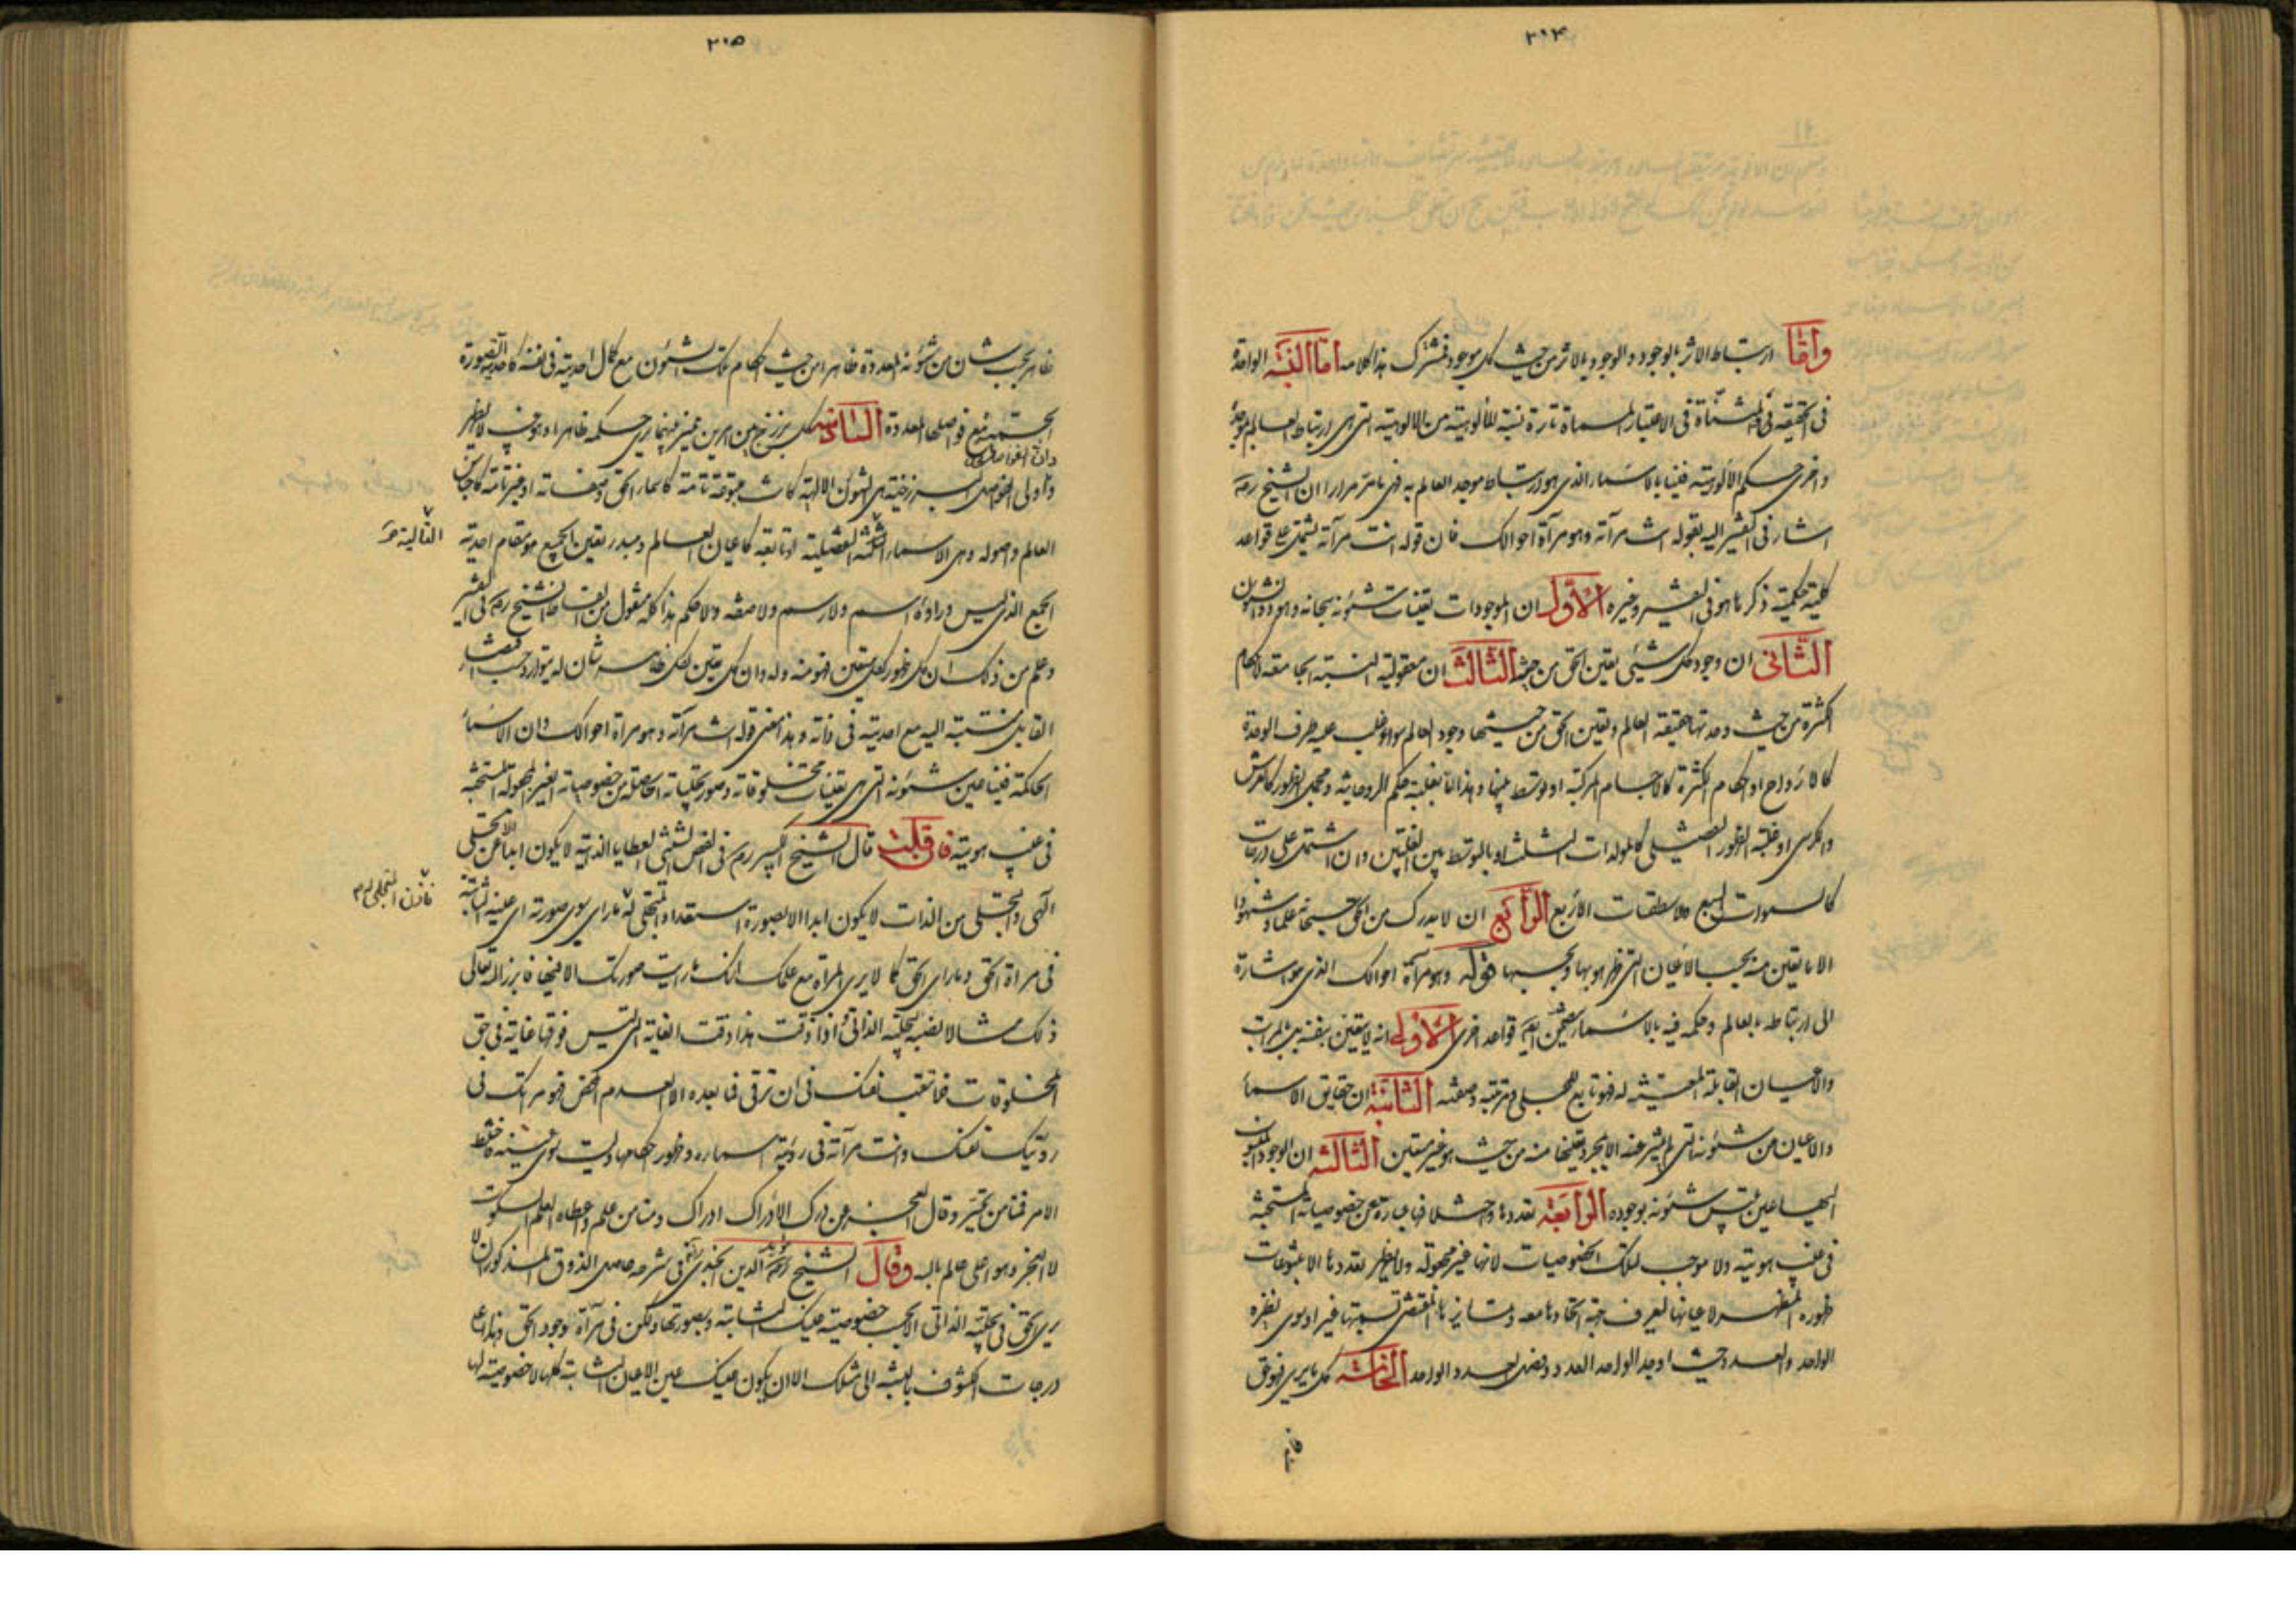 ٣١٤
وأما ارتباط الاثر بالوجود والوجود بالاثر من حيث كل موجود فمشترك هذا كلامه اما النسبة الواحدة
فى الحقيقة المثناة فى الاعتبار المسماة تارة نسبة المألوهية من الالوهية التى هى ارتباط العالم بموجده
واخرى حكم الالوهية فينا بالاسماء الذى هو ارتباط موجد العالم به فهى ما مر مرارا ان الشيخ ره
اشار فى التفسير اليه بقوله انت مرآته وهو مرآة احوالك فان قوله انت مرآته يشتمل على قواعد
كلية حكمية ذكرها هو فى التفسير وغيره الأول ان الموجودات تعينات شئونه سبحانه وهو ذو الشئون
الثانى ان وجود كل شيئ تعين الحق من حيثه الثالث ان معقولية النسبة الجامعة لاحكام
الكثرة من حيث وحدتها حقيقة العالم وتعين الحق من حيثيتها وجود العالم سواء غلب عليه طرف الوحدة
كالارواح او احكام الكثرة كالاجسام المركبة او توسط بينهما وهذا اما بغلبة حكم الروحانية ومجمل الظهور كالعرش
والكرسى او غلبة الظهور التفصيلى كالمولدات الثلث او بالتوسط بين الغلبتين وان اشتمل على درجات
كالسموات السبع والاسطقسات الاربع الرابع ان لا يدرك من الحق سبحانه علما وشهودا
الا ما تعين منه بحسب الاعيان التى ظهر هو بها وبحسبها قوله وهو مرآة احوالك الذى هو اشارة
الى ارتباطه بالعالم وحكمه فيه بالاسماء يتضمن ايضا قواعد اخرى الاولى انه لا يتعين بنفسه بل بالمراتب
والاعيان القابلة المتعينة له فهو تابع للمجلى ومرتبته وصفته الثانية ان حقايق الاسما
والاعيان من شئونه التى لم يتميز عنه الا بمجرد تعينها منه من حيث هو غير متعين الثالثة ان الوجود المنسوب
اليها عين تلبس شئونه بوجوده الرابعة تعددها واختلافها عبارة عن خصوصياته المستجنة
فى غيب هويته ولا موجب لتلك الخصوصيات لانها غير مجعولة ولا يظهر تعددها الا بتنوعات
ظهوره المظهر لاعيانها ليعرف جهة اتحادها معه وتمايزها المقتضى تسميتها غيرا وسوى نظره
الواحد والعدد حيث اوجد الواحد العدد وفصل العدد الواحد الخامسة كل ما يرى فهو حق
ظاهر
٣١٥
ظاهر بحسب شان من شئونه المتعددة ظاهرا من حيث احكام تلك الشئون مع كمال احديته فى نفسه كاحدية الصورة
الجسمية مع فواصلها المتعددة السادسة كل برزخ بين امرين مميز بينهما يرى حكمه ظاهرا وهو غيب لا يظهر
وان الفواصل
واولى الفواصل البرزخية هى الشئون الالهية كانت متبوعة تامة كاسماء الحق وصفاته او غير تامة كاجناس
العالم واصوله وهى الاسماء التفصيلية او تابعة كاعيان العالم ومبدء تعين الجميع هو مقام احدية
التالية
الجمع الذى ليس وراءه اسم ولا رسم ولا صفة ولا حكم هذا كله منقول من الفاظ الشيخ ره فى التفسير
وعلم من ذلك ان كل ظهور لكل متعين فهو منه وله وان كل تعين لكل ظاهر شان له يتوارد بحسب اقتضاء
القابل منتسبة اليه مع احديته فى ذاته وهذا معنى قوله انت مرآته وهو مرآة احوالك وان الاسماء
الحاكمة فينا عين شئونه التى هى تعينات مخلوقاته وصور تجلياته الحاصلة من خصوصياته الغير المجعولة المستجنة
فى غيب هويته فان قلت قال الشيخ الكبير ره فى الفص الشيثى العطايا الذاتية لا يكون ابدا الا عن تجلى
آلهى والتجلى من الذات لا يكون ابدا الا بصورة استعداد المتجلى له ما راى سوى صورته اى عينه الثابتة
فاذن المتجلى له
فى مرآة الحق وما راى الحق كما لا يرى المرآة مع علمك انك ما رايت صورتك الا فيها فابرز الله تعالى
ذلك مثالا نصبه لتجليه الذاتى اذا ذقت هذا ذقت الغاية التى ليس فوقها غاية فى حق
المخلوقات فلا تتعب نفسك فى ان ترقى فما بعده الا العدم المحض فهو مرآتك فى
رؤيتك نفسك وانت مرآته فى رؤية اسمائه وظهور احكامها وليست سوى عينه فاختلط
الامر فمنا من تحير وقال العجز عن درك الادراك ادراك ومنا من علم واعطاه العلم السكوت
لا العجز وهو اعلى عالم بالله وقال الشيخ مؤيد الدين الجندى فى شرحه حاصل الذوق المذكور ان لا
يرى الحق فى تجليه الذاتى الا بحسب خصوصية عينك الثابتة وبصورتها ولكن فى مرآة وجود الحق وهذا اعلى
درجات الكشوف بالنسبة الى مثلك الا ان يكون عينك عين الاعيان الثابتة كلها لا خصوصية لها